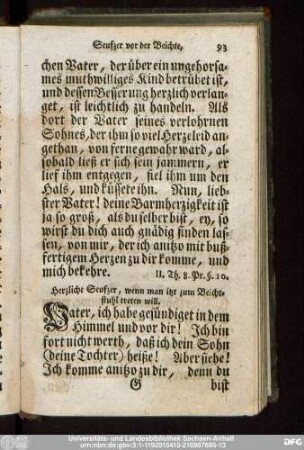 Seufzer vor der Beichte, 93
chen Vater, der über ein ungehorsa-
mes muthwilliges Kind betrübet ist,
und dessen Besserung herzlich verlan-
get, ist leichtlich zu handeln. Als
dort der Vater seines verlohrnen
Sohnes, der ihm so viel Herzeleid an-
gethan, von ferne gewahr ward, al-
sobald ließ er sich sein jammern, er
lief ihm entgegen, fiel ihm um den
Hals, und küssete ihn. Nun, lieb-
ster Vater! deine Barmherzigkeit ist
ja so groß, als du selber bist, ey, so
wirst du dich auch gnädig finden las-
sen, von mir, der ich anitzo mit buß-
fertigem Herzen zu dir komme, und
mich bekehre. II. Th. 8. Pr. §. 20.
Herzliche Seufzer, wenn man itzt zum Beicht-
stuhl treten will.
Vater, ich habe gesündiget in dem
Himmel und vor dir! Ich bin
fort nicht werth, daß ich dein Sohn
(deine Tochter) heiße! Aber siehe!
Ich komme anitzo zu dir, denn du
G bist
Universitäts- und Landesbibliothek Sachsen-Anhalt
urn:nbn:de:gbv:3:1-1192015415-216987695-13
DFG